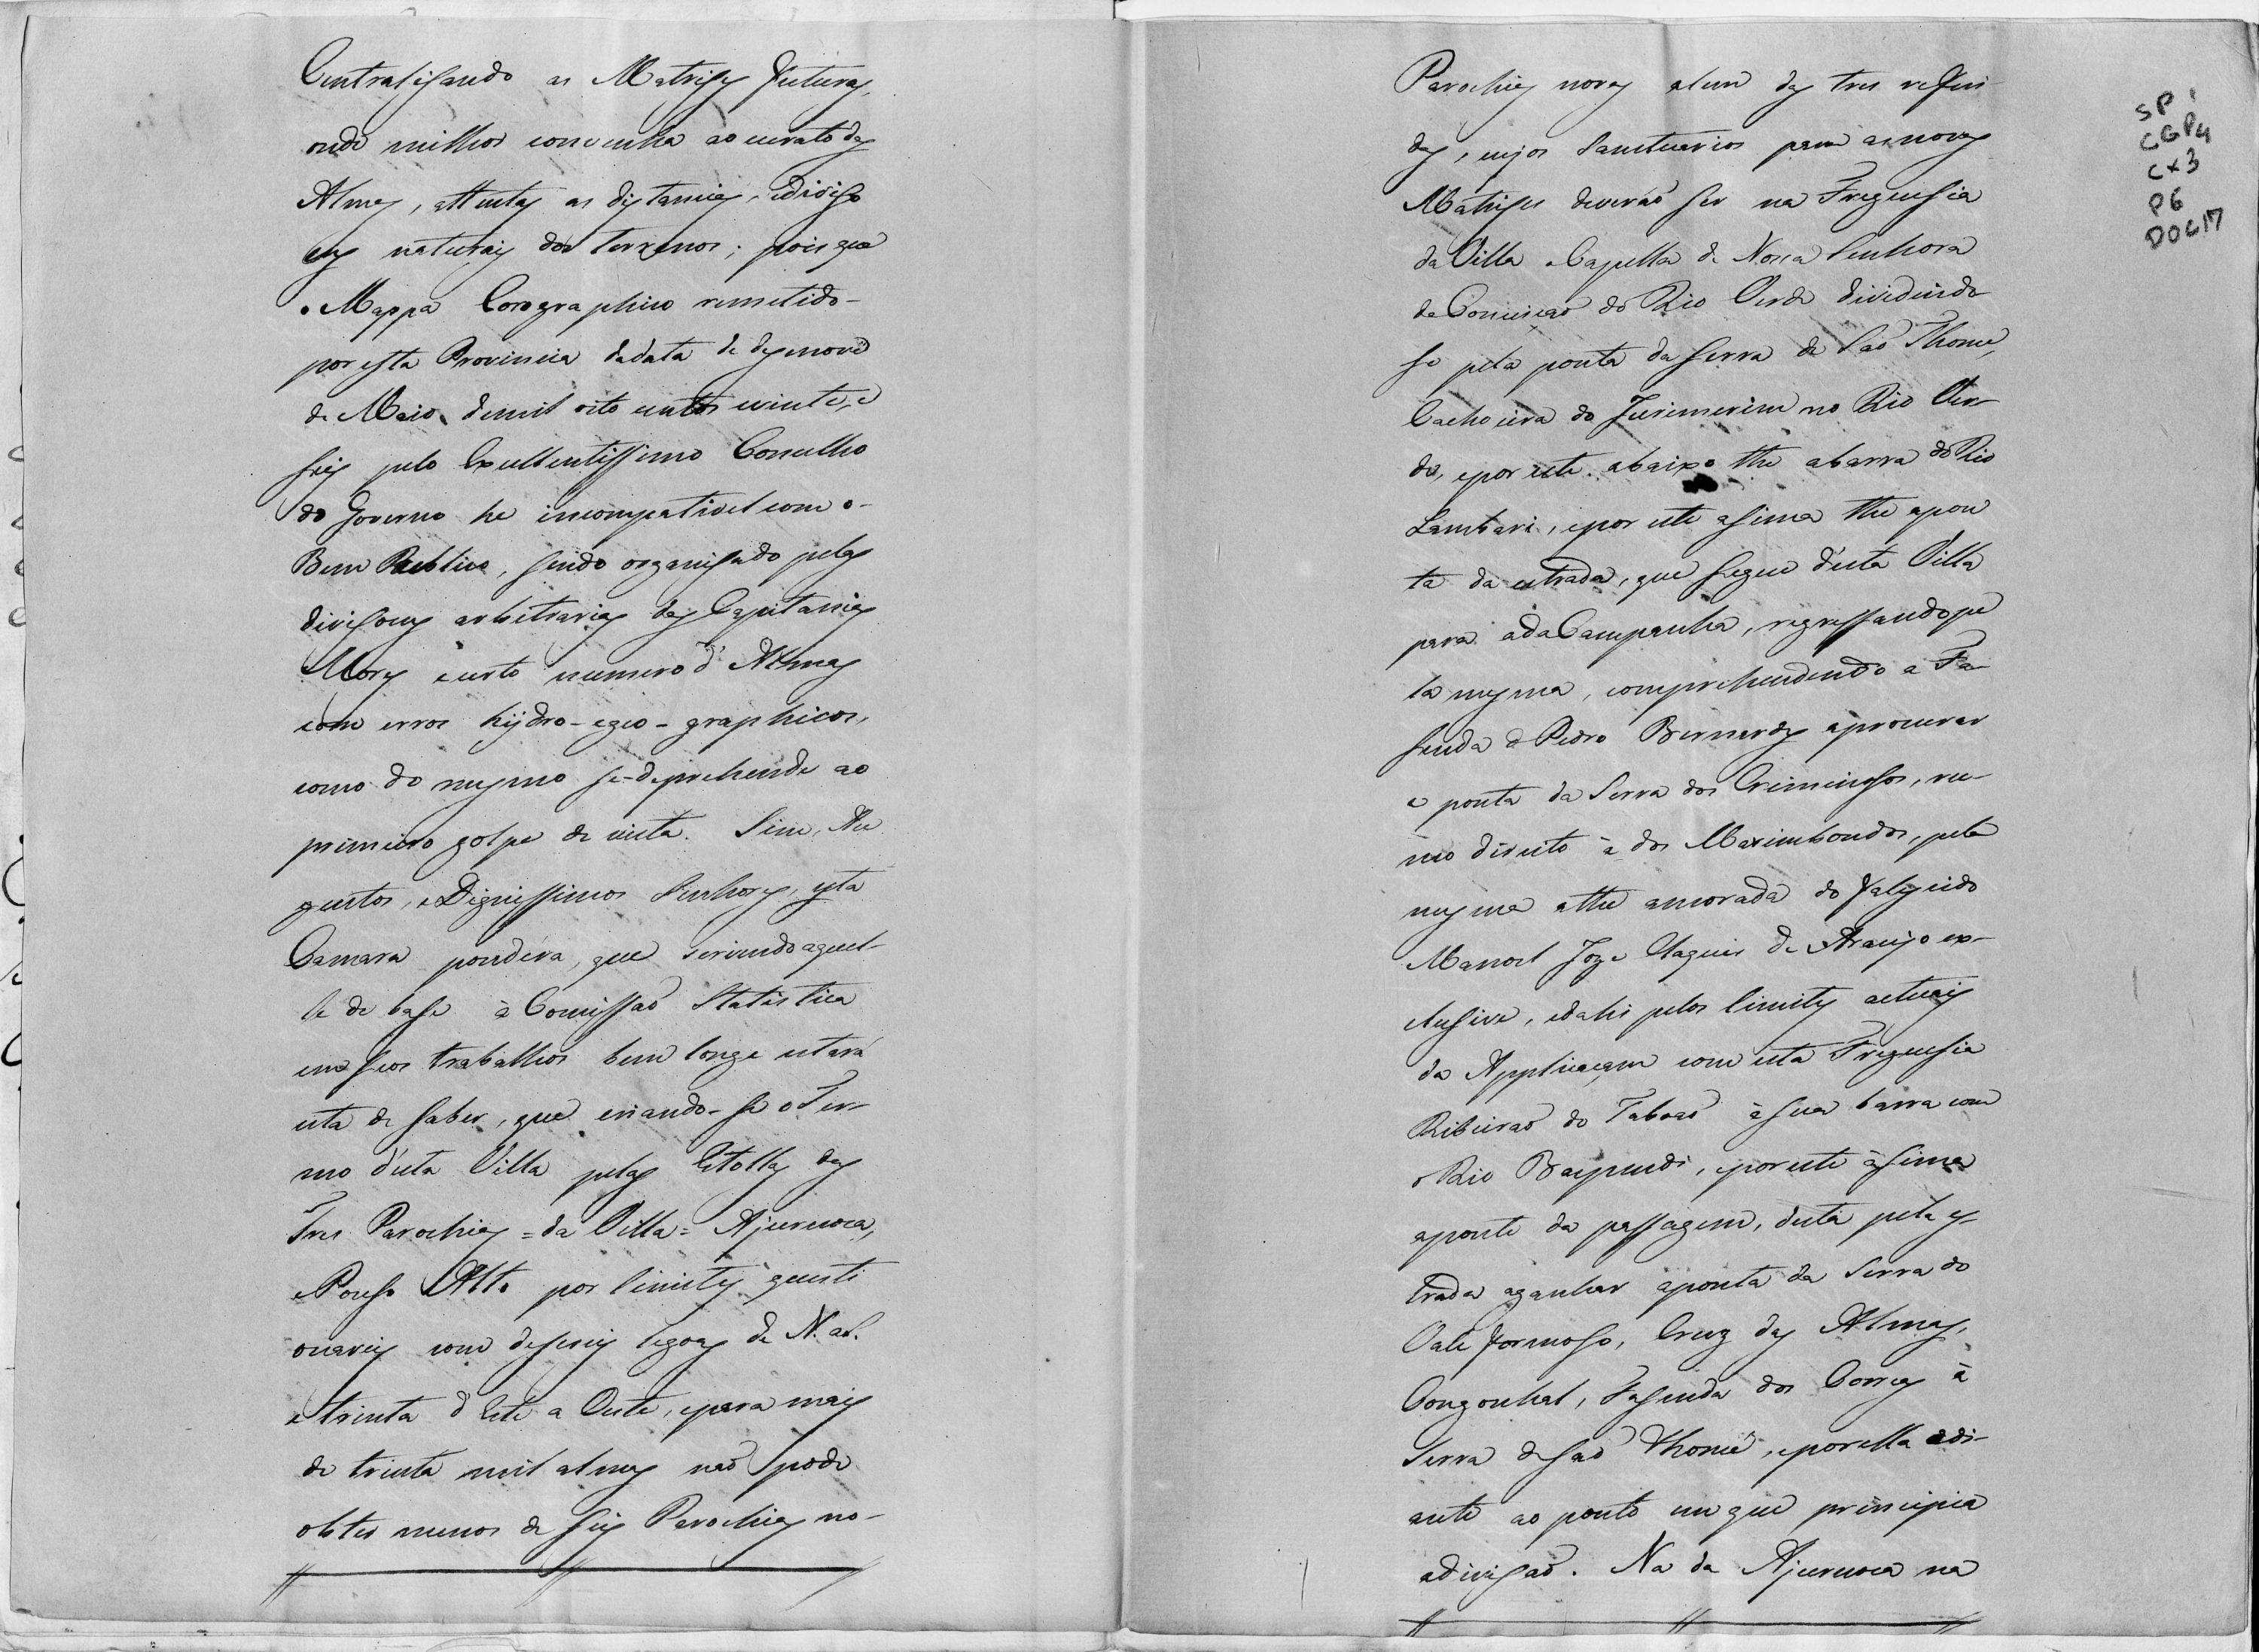 Centralisando as Matrises futuras,
onde milhor convenha ao curato das
Almas, attentas as distancias, e diviso
es naturais dos terrenos; pois que
o Mappa Corographico remetido
por esta Provincia da data de desenove
de Maio de mil oito centos e vinte, e
seis pelo Excellentissimo Conselho
do Governo he incompativel com o
Bem Publico, sendo organisado pelas
divisoens arbitrarias das Capitanias
Mores e certo numero d'Almas
com erros hijdro-egeo-graphicos,
como do mesmo se-deprehende ao
primeiro golpe de vista. Sim, Au
gustos, e Dignissimos Senhores, esta
Camara pondéra, que servindo aquel-
le de base à Comissaõ Statistica
em seos trabalhos bem longe estará
esta de saber, que criando-se o Ter-
mo d'esta Villa pelas Estollas das
Tres Parochias = da Villa = Ajuruoca,
e Pouso Alto por limites questi
onaveis com deseseis legoas de N. a S.
e trinta d'Este a Oeste, e para mais
de trinta mil almas naõ pode
obter menos de seis Parochias no-
Parochias novas alem das tres referi-
das, cujos Sanctuarios para as novas
Matrises deveráõ ser na Freguesia
da Villa a Capella de Nossa Senhora
da Conceicaõ do Rio Verde dividindo
se pela ponta da serra de Saõ Thomé,
Cachoeira do Jurumerim no Rio Ver-
de, e por este abaixo the a barra do Rio
Lambari, e por este asima the a pon
ta da estrada, que segue d'esta Villa
para a da Campanha, regressando pe
la mesma, comprehendendo a Fa
senda de Pedro Bernardes a procurar
a ponta da Serra dos Criminosos, ru-
mo direito à dos Marimbondos, pela
mesma athe a morada do falescido
Manoel Joze Vaguis de Araujo ex-
clusive, e dahi pelos limites actuais
da Applicaçam com esta Freguesia
Ribeiraõ do Taboaõ à sua barra com
o Rio Baependi, e por este àsima
a ponte da passagem, desta pela es-
trada a ganhar a ponta da Serra do
Vale formoso, Cruz das Almas,
Congonhal, Fasenda dos Correas à
Serra de saõ Thomé, e por ella adi-
ante ao ponto em que principia
a divisaõ. Na da Ajuruoca na
SP
CGP4
CX3
P6
DOC17